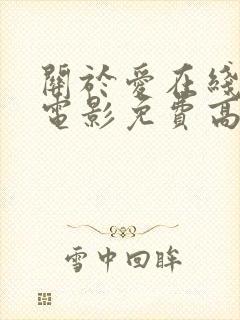 關於愛在綫
電影免費高
雪中回眸